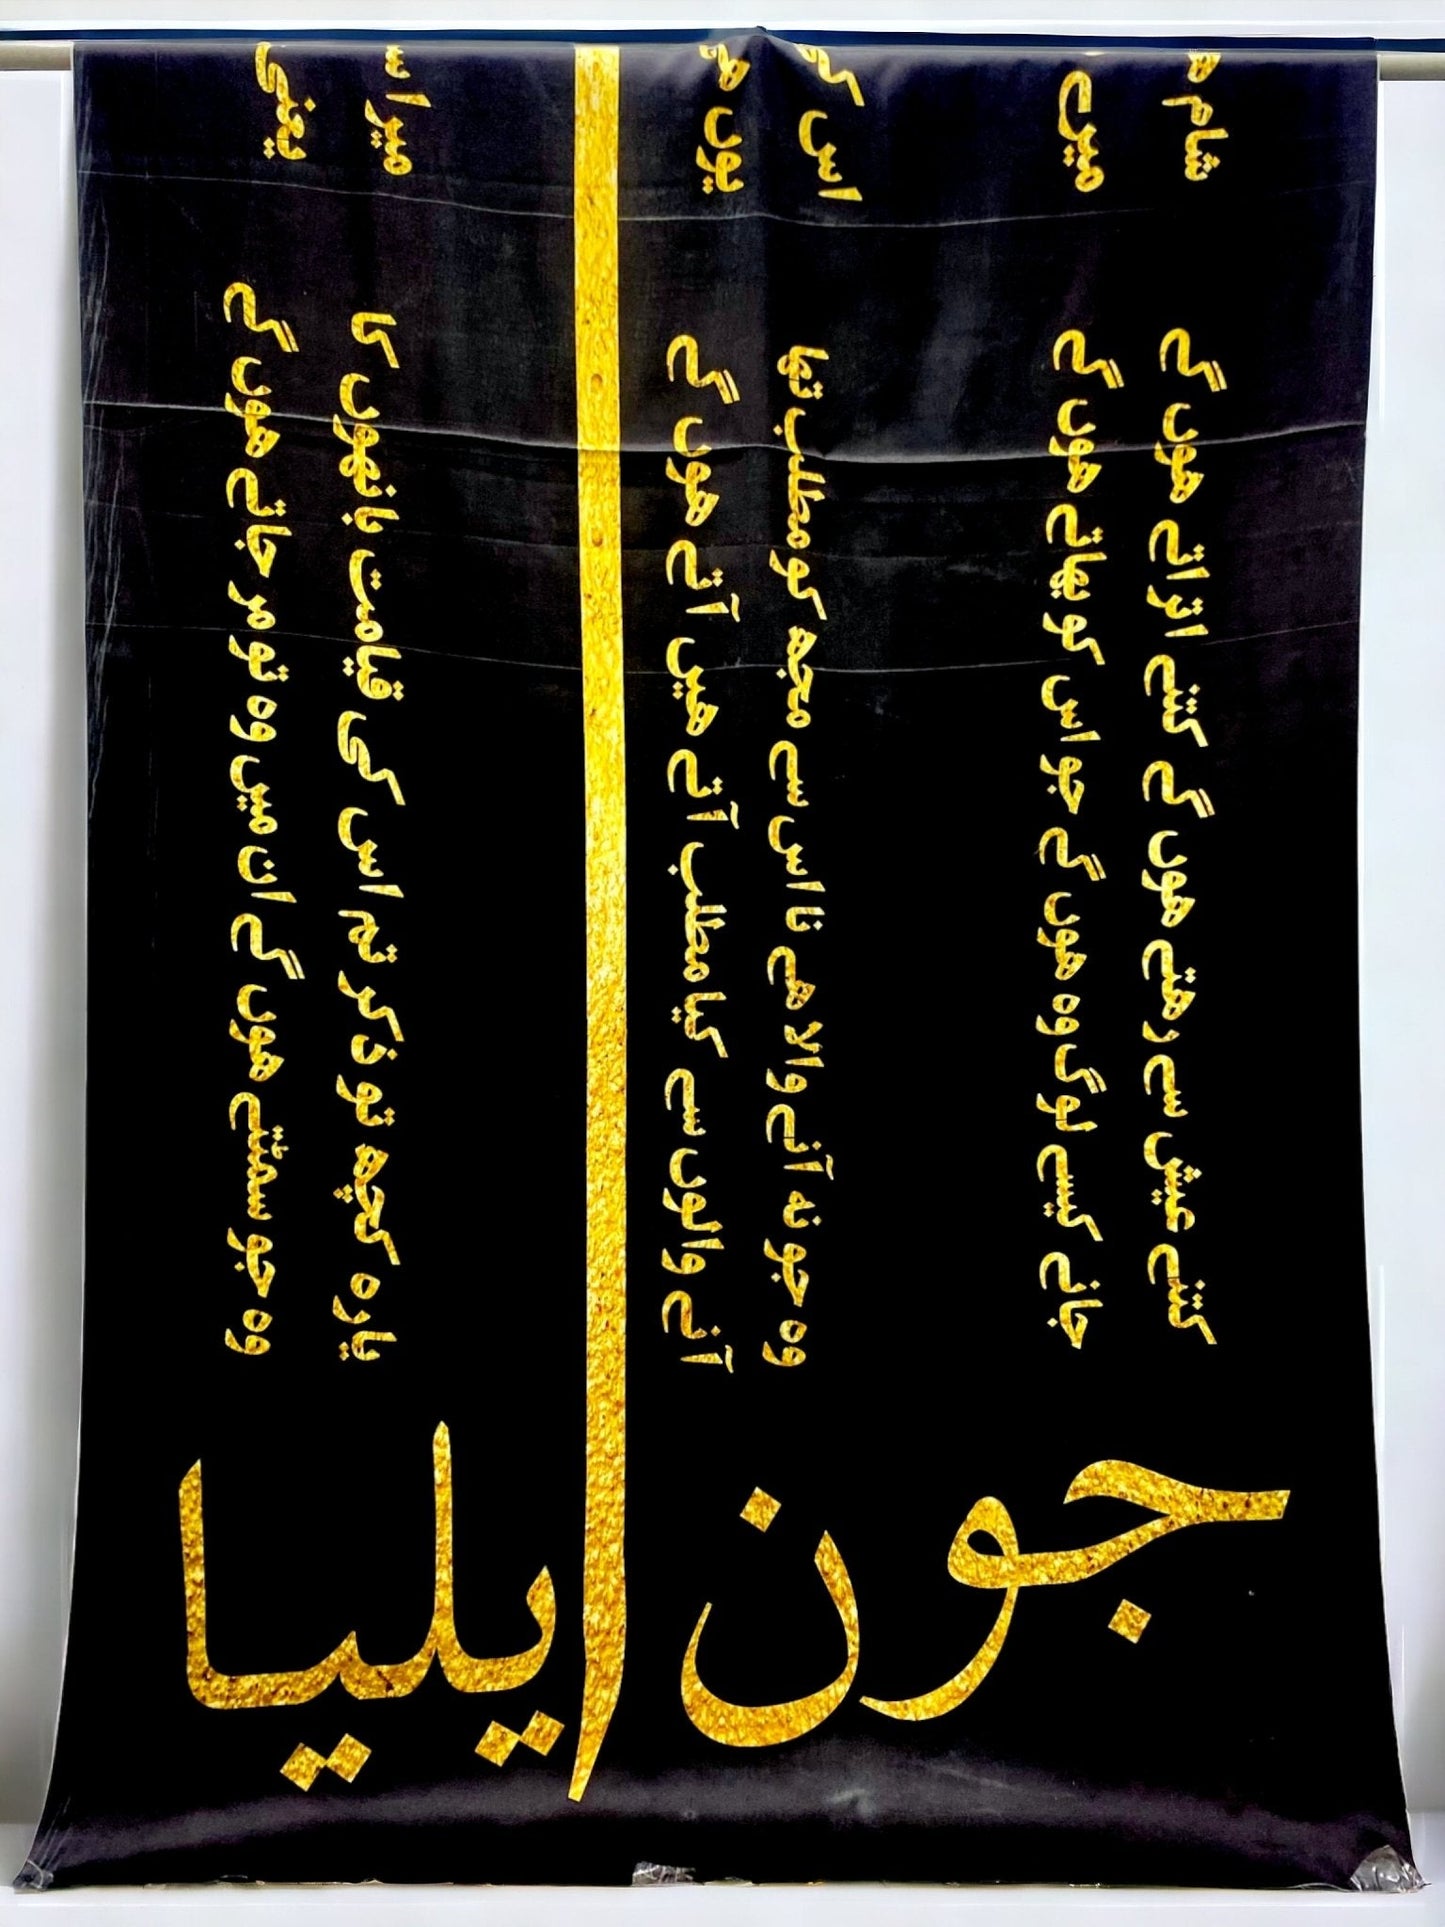 کتنے عیش سے رهتے هوں گے کتنے اتراتے هوں گے
جانے کیسے لوگ وه هوں گے جو اس کو بهاتے هوں گے
وه جو نه آنے والا هے نا اس سے مجھ کو مطلب تها
آنے والوں سے کیا مطلب آتے هیں آتے هوں گے
یاره کچھ تو ذکر تم اس کی قیامت بانهوں کا
وه جو سمٹتے هوں گے ان میں وه تو مر جاتے هوں گے
شام
میں
اس کی
یوں
میرا
یعنی
جون ایلیا